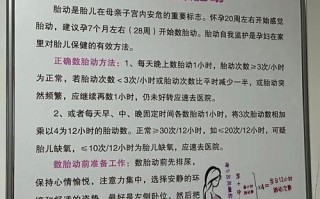 胎动是胎儿在母亲子宫内安危的重要标志。怀孕20周左右开始感觉
胎动，建议孕7个月左右（28周）开始数胎动。胎动自我监护是孕妇在家
里对胎儿保健的有效方法。
正确数胎动方法：1、每天晚上数胎动1小时，胎动次数≥3次/小时
为正常，若胎动次数＜3次/小时或胎动次数比平时减少一半，或胎动突
然频繁，应继续再数1小时，仍未好转应速去医院。
2、或者每天早、中、晚固定时间各数胎动1小时，将3次胎动数相加
乘以4为12小时的胎动数。正常≥30次/12小时，如≤20次/12小时，可疑
胎儿缺氧，≤10次/12小时为胎儿缺氧，应速去医院。
数胎动前准备工作：数胎动前先排尿，
保持心情愉悦，注意力集中，选择安静的环
境和舒适的姿势，最好是左侧卧位，然后把